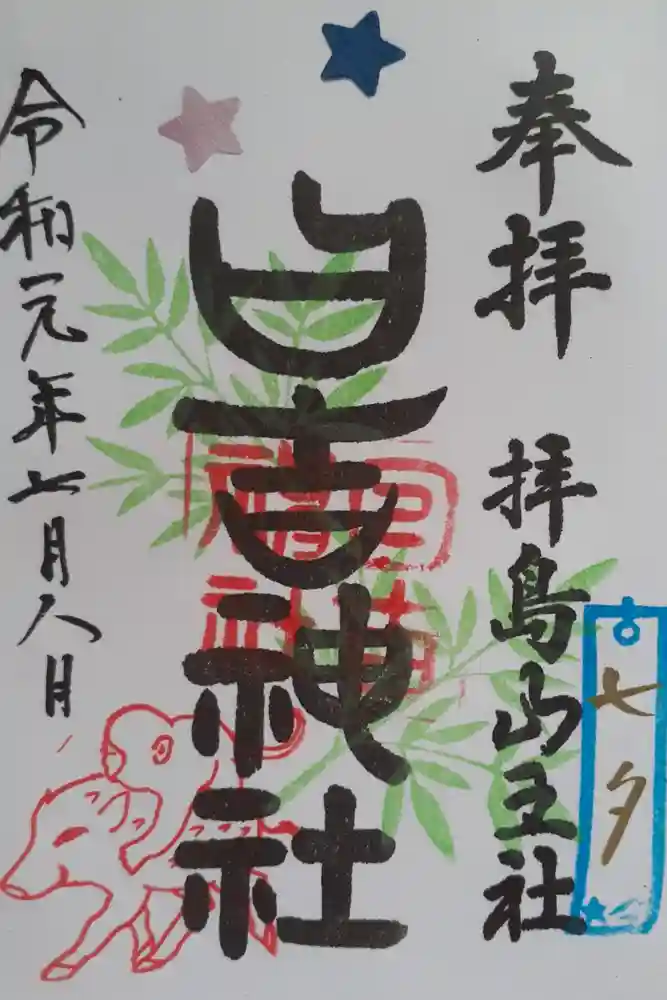 奉拝
拝島山王社
七夕
日吉神社
日吉神社
令和元年七月八日